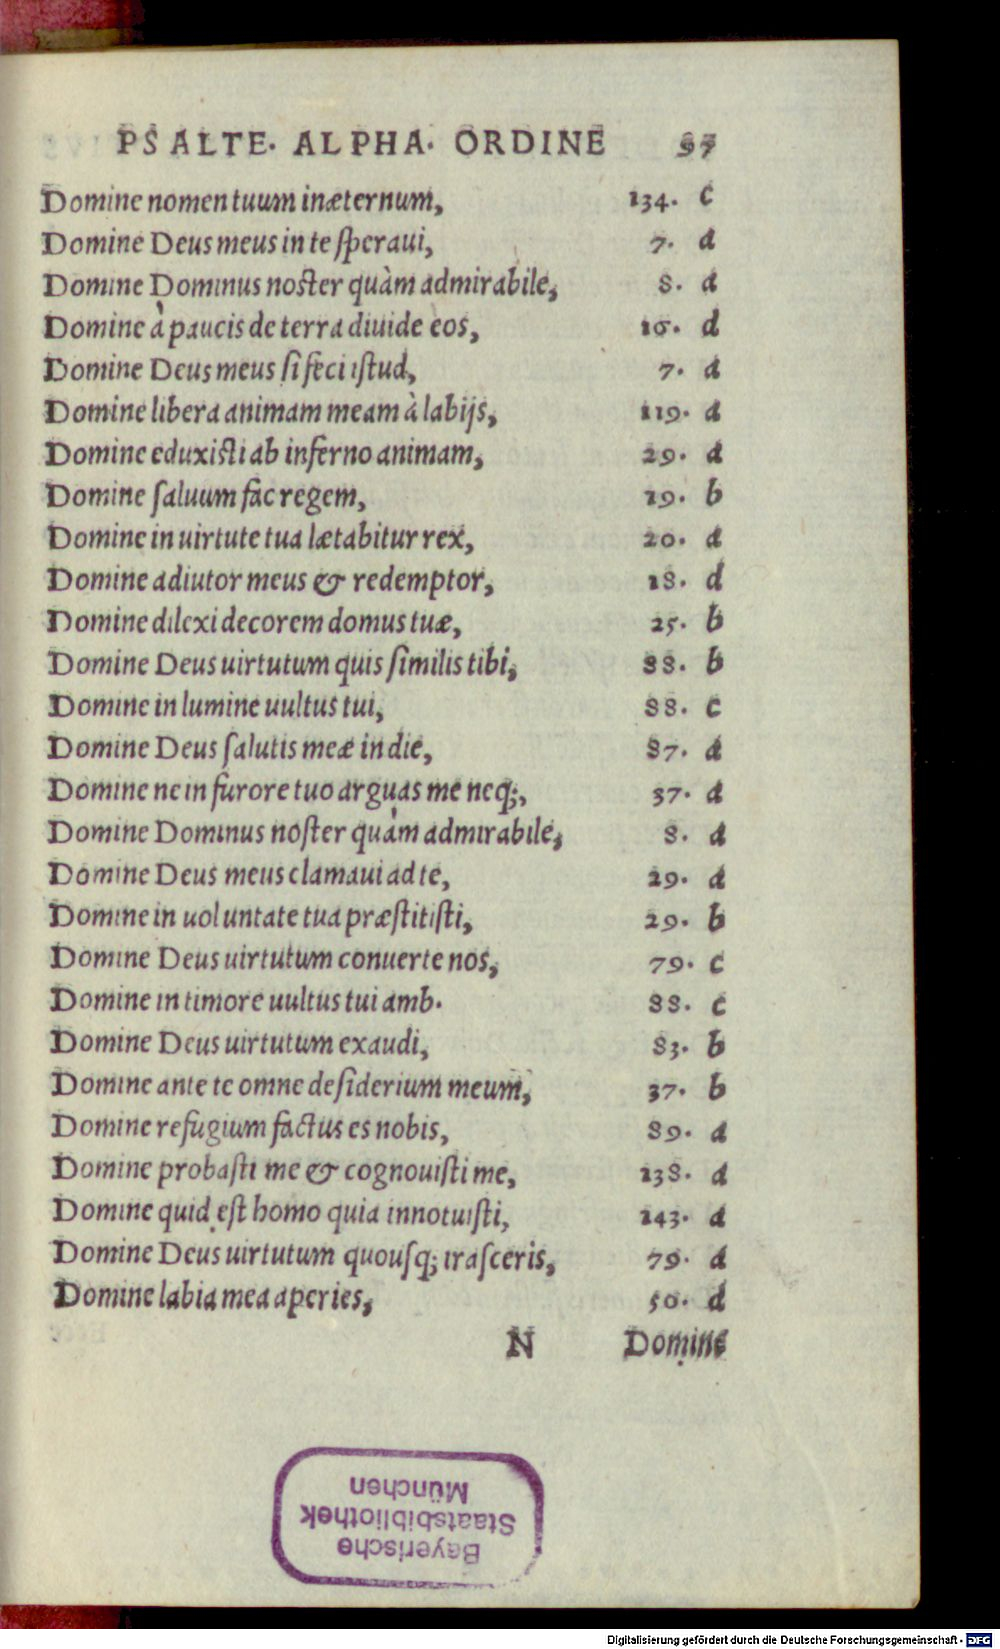 PSALTE. ALPHA. ORDINE 97
Domine nomen tuum in æternum, 134. c
Domine Deus meus in te speraui, 7. a
Domine Dominus noster quàm admirabile, 8. a
Domine à paucis de terra diuide eos, 16. d
Domine Deus meus si feci istud, 7. a
Domine libera animam meam à labijs, 119. a
Domine eduxisti ab inferno animam, 29. a
Domine saluum fac regem, 19. b
Domine in uirtute tua lætabitur rex, 20. a
Domine adiutor meus & redemptor, 18. d
Domine dilexi decorem domus tuæ, 25. b
Domine Deus uirtutum quis similis tibi, 88. b
Domine in lumine uultus tui, 88. c
Domine Deus salutis meæ in die, 87. a
Domine ne in furore tuo arguas me neq;, 37. a
Domine Dominus noster quàm admirabile, 8. a
Domine Deus meus clamaui ad te, 29. a
Domine in uoluntate tua præstitisti, 29. b
Domine Deus uirtutum conuerte nos, 79. c
Domine in timore uultus tui amb. 88. c
Domine Deus uirtutum exaudi, 83. b
Domine ante te omne desiderium meum, 37. b
Domine refugium factus es nobis, 89. a
Domine probasti me & cognouisti me, 138. a
Domine quid est homo quia innotuisti, 143. a
Domine Deus uirtutum quousq; irasceris, 79. a
Domine labia mea aperies, 50. d
N Domine
Bayerische
Staatsbibliothek
München
Digitalisierung gefördert durch die Deutsche Forschungsgemeinschaft - DFG